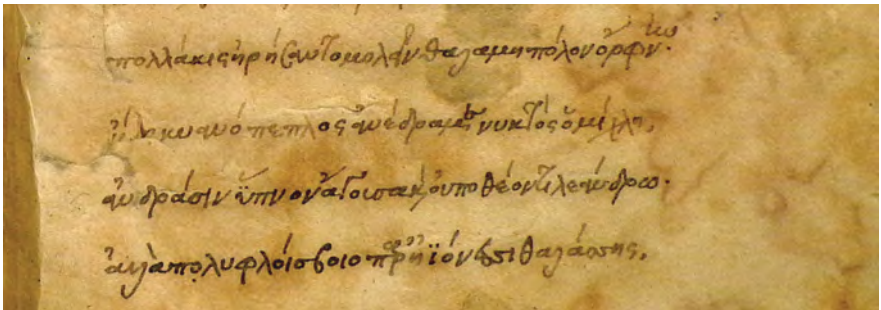 πολλάκις ἠρήσαντο μολεῖν θαλαμηπόλον ὄρφνην·
ἤδη κυανόπεπλος ἀνέδραμε νυκτὸς ὀμίχλη,
ἀνδράσιν ὕπνον ἄγουσα κ, οὐ ποθέοντι λεάνδρω·
ἀλλὰ πολυφλοίσβοιο παρ' ἠϊόνεσσι θαλάσσης,